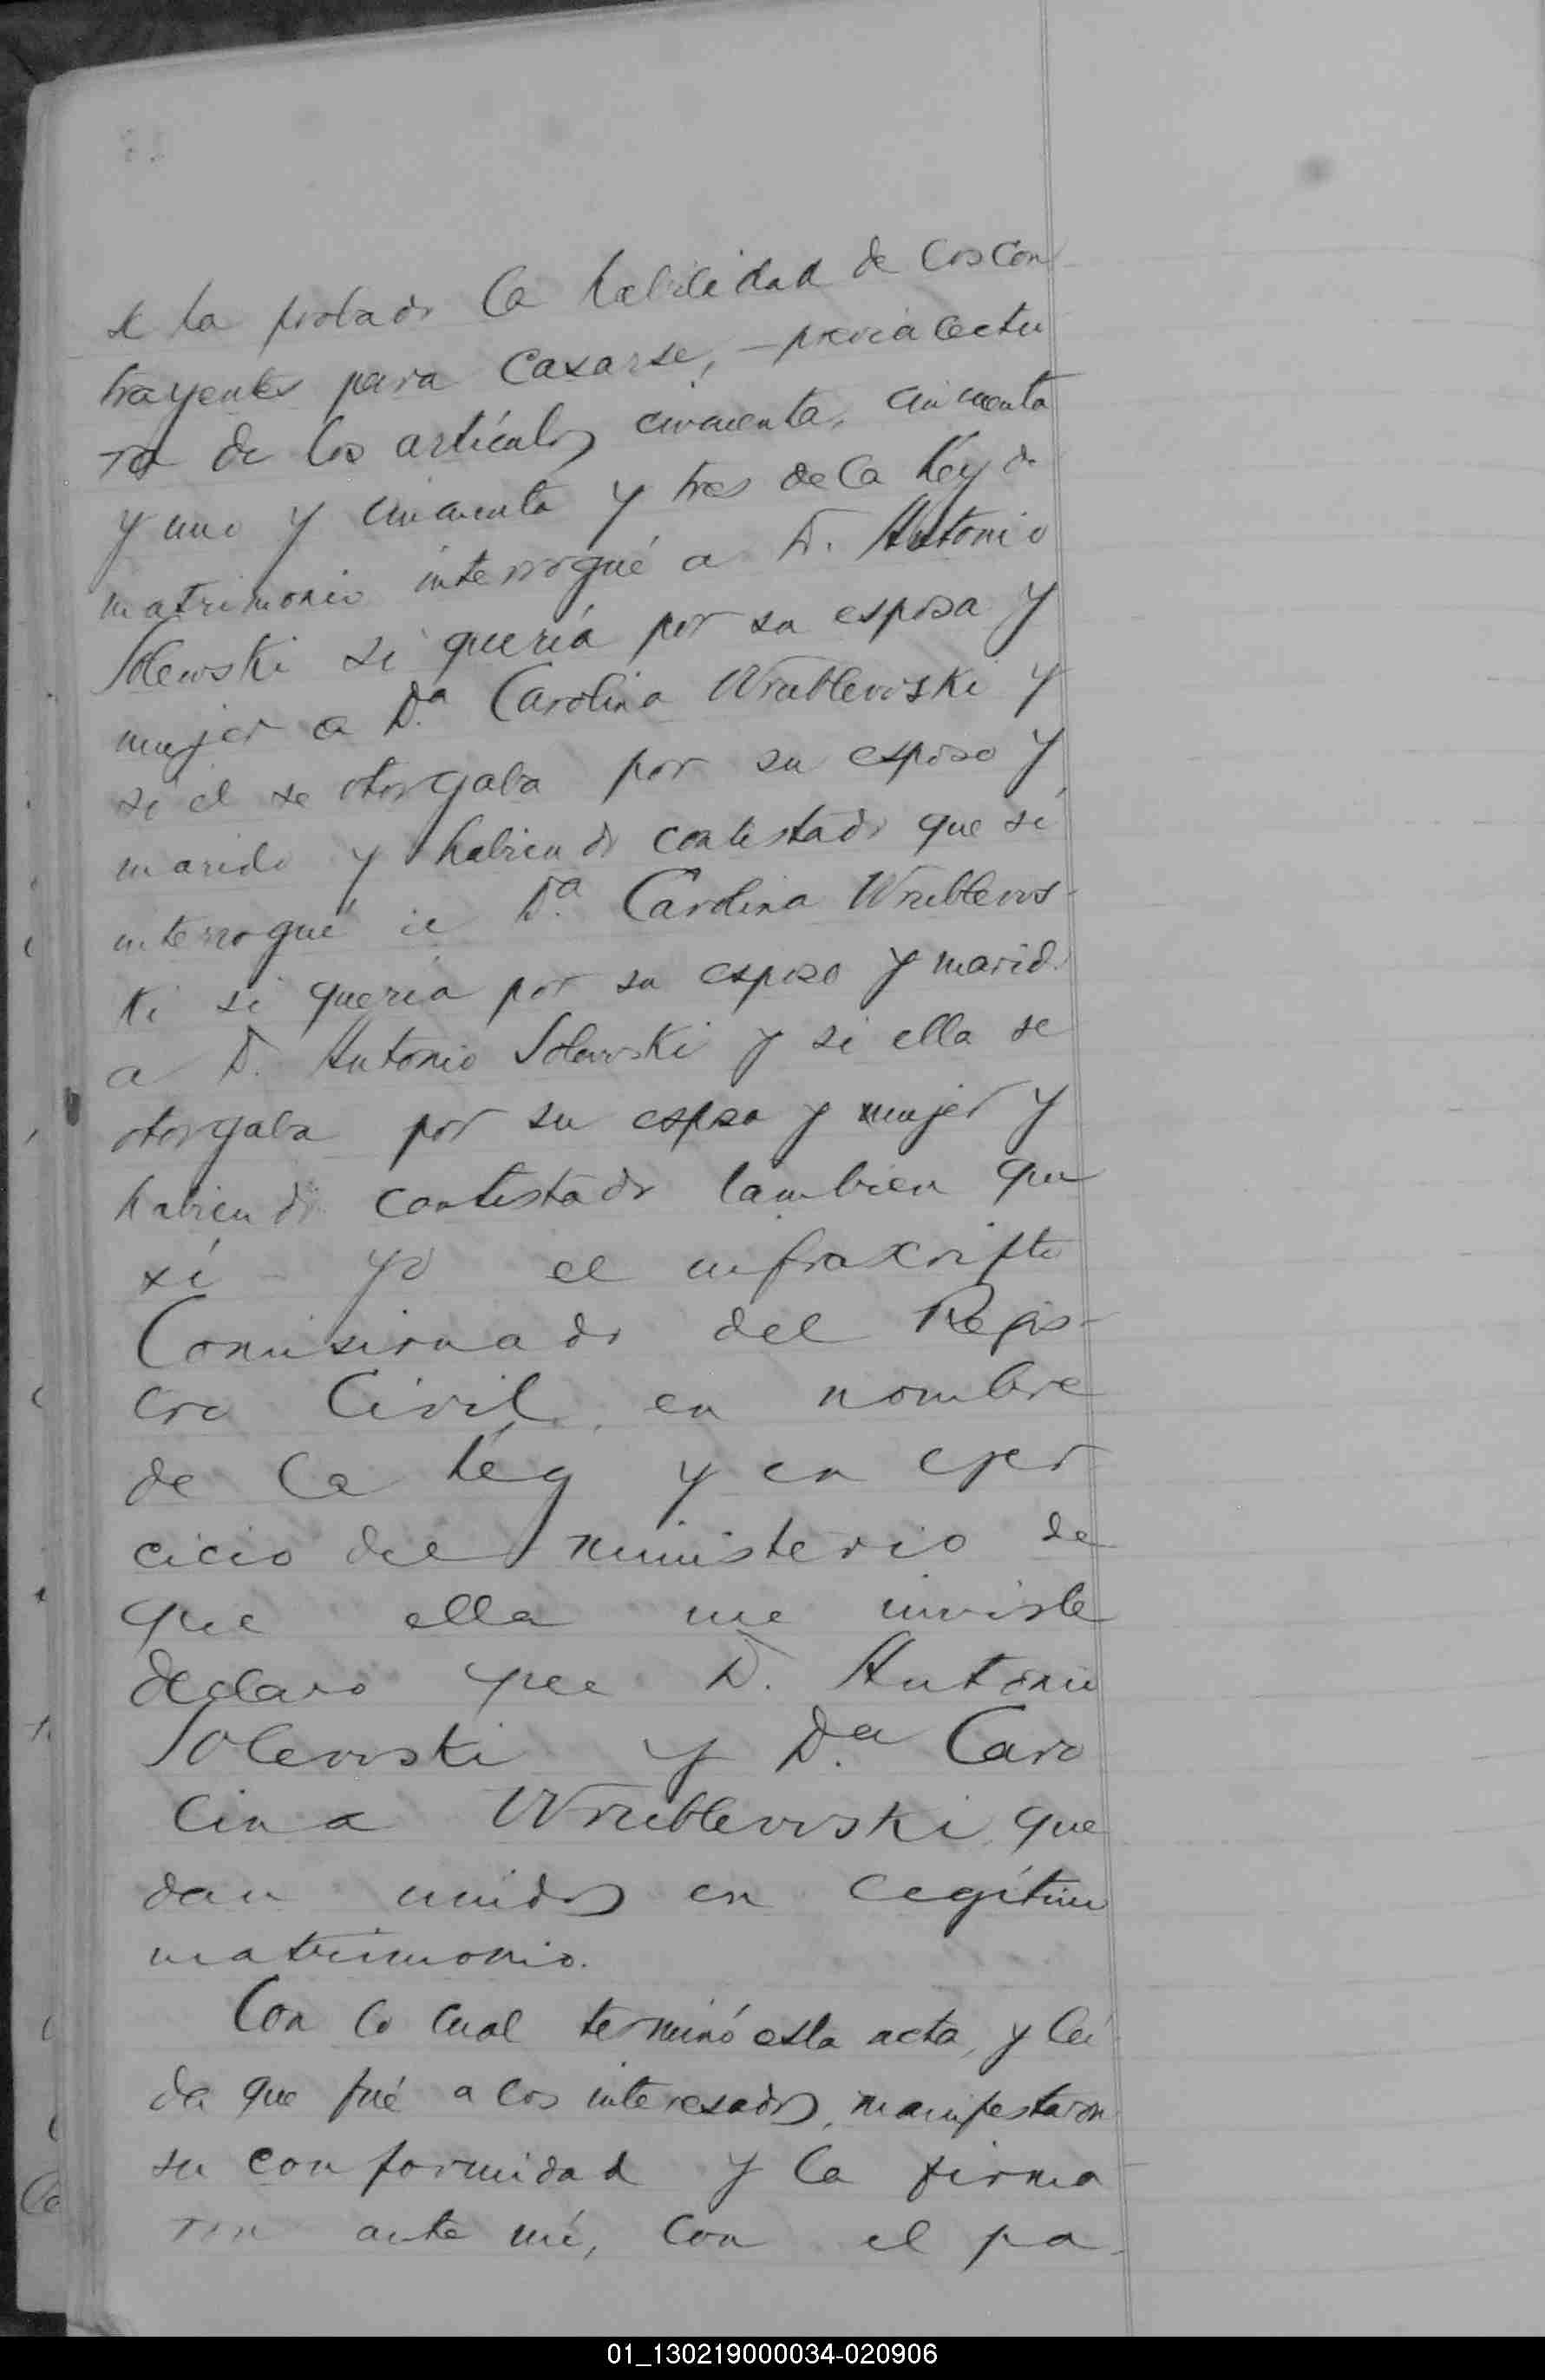 se ha probado la habilidad de los con
trayentes para casarse, – previa lectu
ra de los artículos cincuenta, cincuenta
y uno y cincuenta y tres de la Ley de
matrimonio interrogué a D. Antonio
Solewski si quería por su esposa y
mujer a Dª Carolina Wrublewski y
si él se otorgaba por su esposo y
marido y habiendo contestado que sí
interrogué a Dª Carolina Wrublews-
ki si quería por su esposo y marido
a D. Antonio Solewski y si ella se
otorgaba por su esposa y mujer y
habiendo contestado tambien que
sí – yo el infraxcripto
Comisionado del Regis-
tro Civil, en nombre
de la Ley y en ejer
cicio del ministerio de
que ella me inviste
declaro que D. Antonio
Solewski y Dª Caro
lina Wrublewski que
dan unidos en legítimo
matrimonio.
Con lo cual terminó esta acta, y leí
da que fué a los interesados, manifestaron
su conformidad y la firma
ron ante mí, con el pa-
01_130219000034-020906